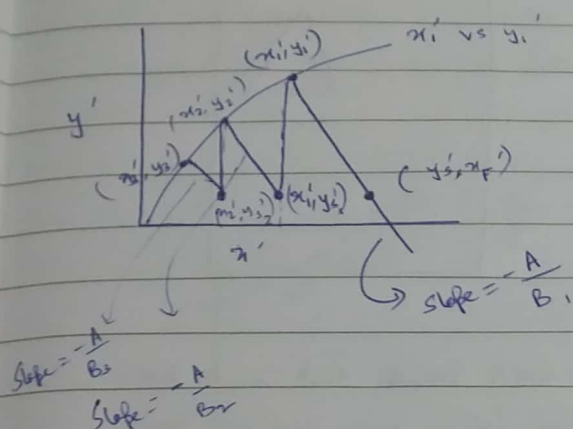 x₁' vs y₁'
(x₁', y₁')
y'
(x₂', y₂')
(x₃', y₃')
(y_s', x_F')
(x₂', y_s')
(x₁', y_s')
x'
Slope = -A/B₁
Slope = -A/B₃
Slope = -A/B₂